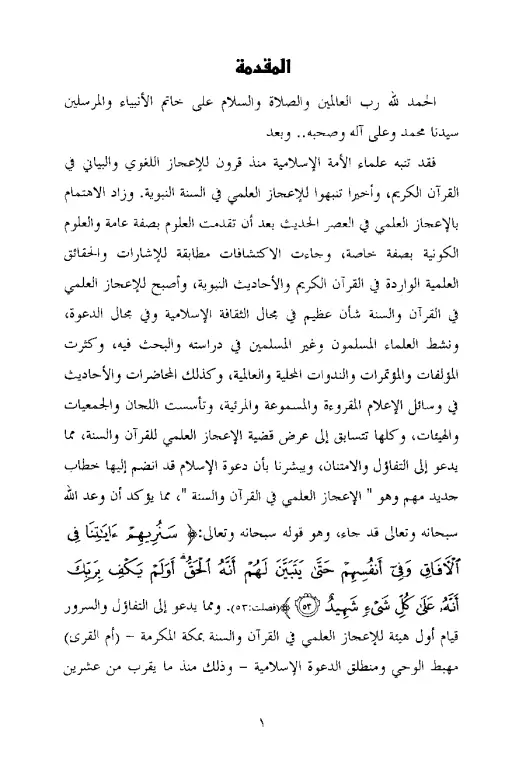 المقدمة
الحمد لله رب العالمين والصلاة والسلام على خاتم الأنبياء والمرسلين
سيدنا محمد وعلى آله وصحبه.. وبعد
فقد تنبه علماء الأمة الإسلامية منذ قرون للإعجاز اللغوي والبياني في
القرآن الكريم، وأخيرا تنبهوا للإعجاز العلمي في السنة النبوية. وزاد الاهتمام
بالإعجاز العلمي في العصر الحديث بعد أن تقدمت العلوم بصفة عامة والعلوم
الكونية بصفة خاصة، وجاءت الاكتشافات مطابقة للإشارات والحقائق
العلمية الواردة في القرآن الكريم والأحاديث النبوية، وأصبح للإعجاز العلمي
في القرآن والسنة شأن عظيم في مجال الثقافة الإسلامية وفي مجال الدعوة،
ونشط العلماء المسلمون وغير المسلمين في دراسته والبحث فيه، وكثرت
المؤلفات والمؤتمرات والندوات المحلية والعالمية، وكذلك المحاضرات والأحاديث
في وسائل الإعلام المقروءة والمسموعة والمرئية، وتأسست اللجان والجمعيات
والهيئات، وكلها تتسابق إلى عرض قضية الإعجاز العلمي للقرآن والسنة، مما
يدعو إلى التفاؤل والامتنان، ويبشرنا بأن دعوة الإسلام قد انضم إليها خطاب
جديد مهم وهو " الإعجاز العلمي في القرآن والسنة "، مما يؤكد أن وعد الله
سبحانه وتعالى قد جاء، وهو قوله سبحانه وتعالى:﴿ سَنُرِيهِمْ ءَايَٰتِنَا فِى
ٱلْأَفَاقِ وَفِىٓ أَنفُسِهِمْ حَتَّىٰ يَتَبَيَّنَ لَهُمْ أَنَّهُ ٱلْحَقُّ ۗ أَوَلَمْ يَكْفِ بِرَبِّكَ
أَنَّهُۥ عَلَىٰ كُلِّ شَىْءٍ شَهِيدٌ ﴿٥٣﴾ ﴾(فصلت:٥٣). ومما يدعو إلى التفاؤل والسرور
قيام أول هيئة للإعجاز العلمي في القرآن والسنة بمكة المكرمة – (أم القرى)
مهبط الوحي ومنطلق الدعوة الإسلامية – وذلك منذ ما يقرب من عشرين
١